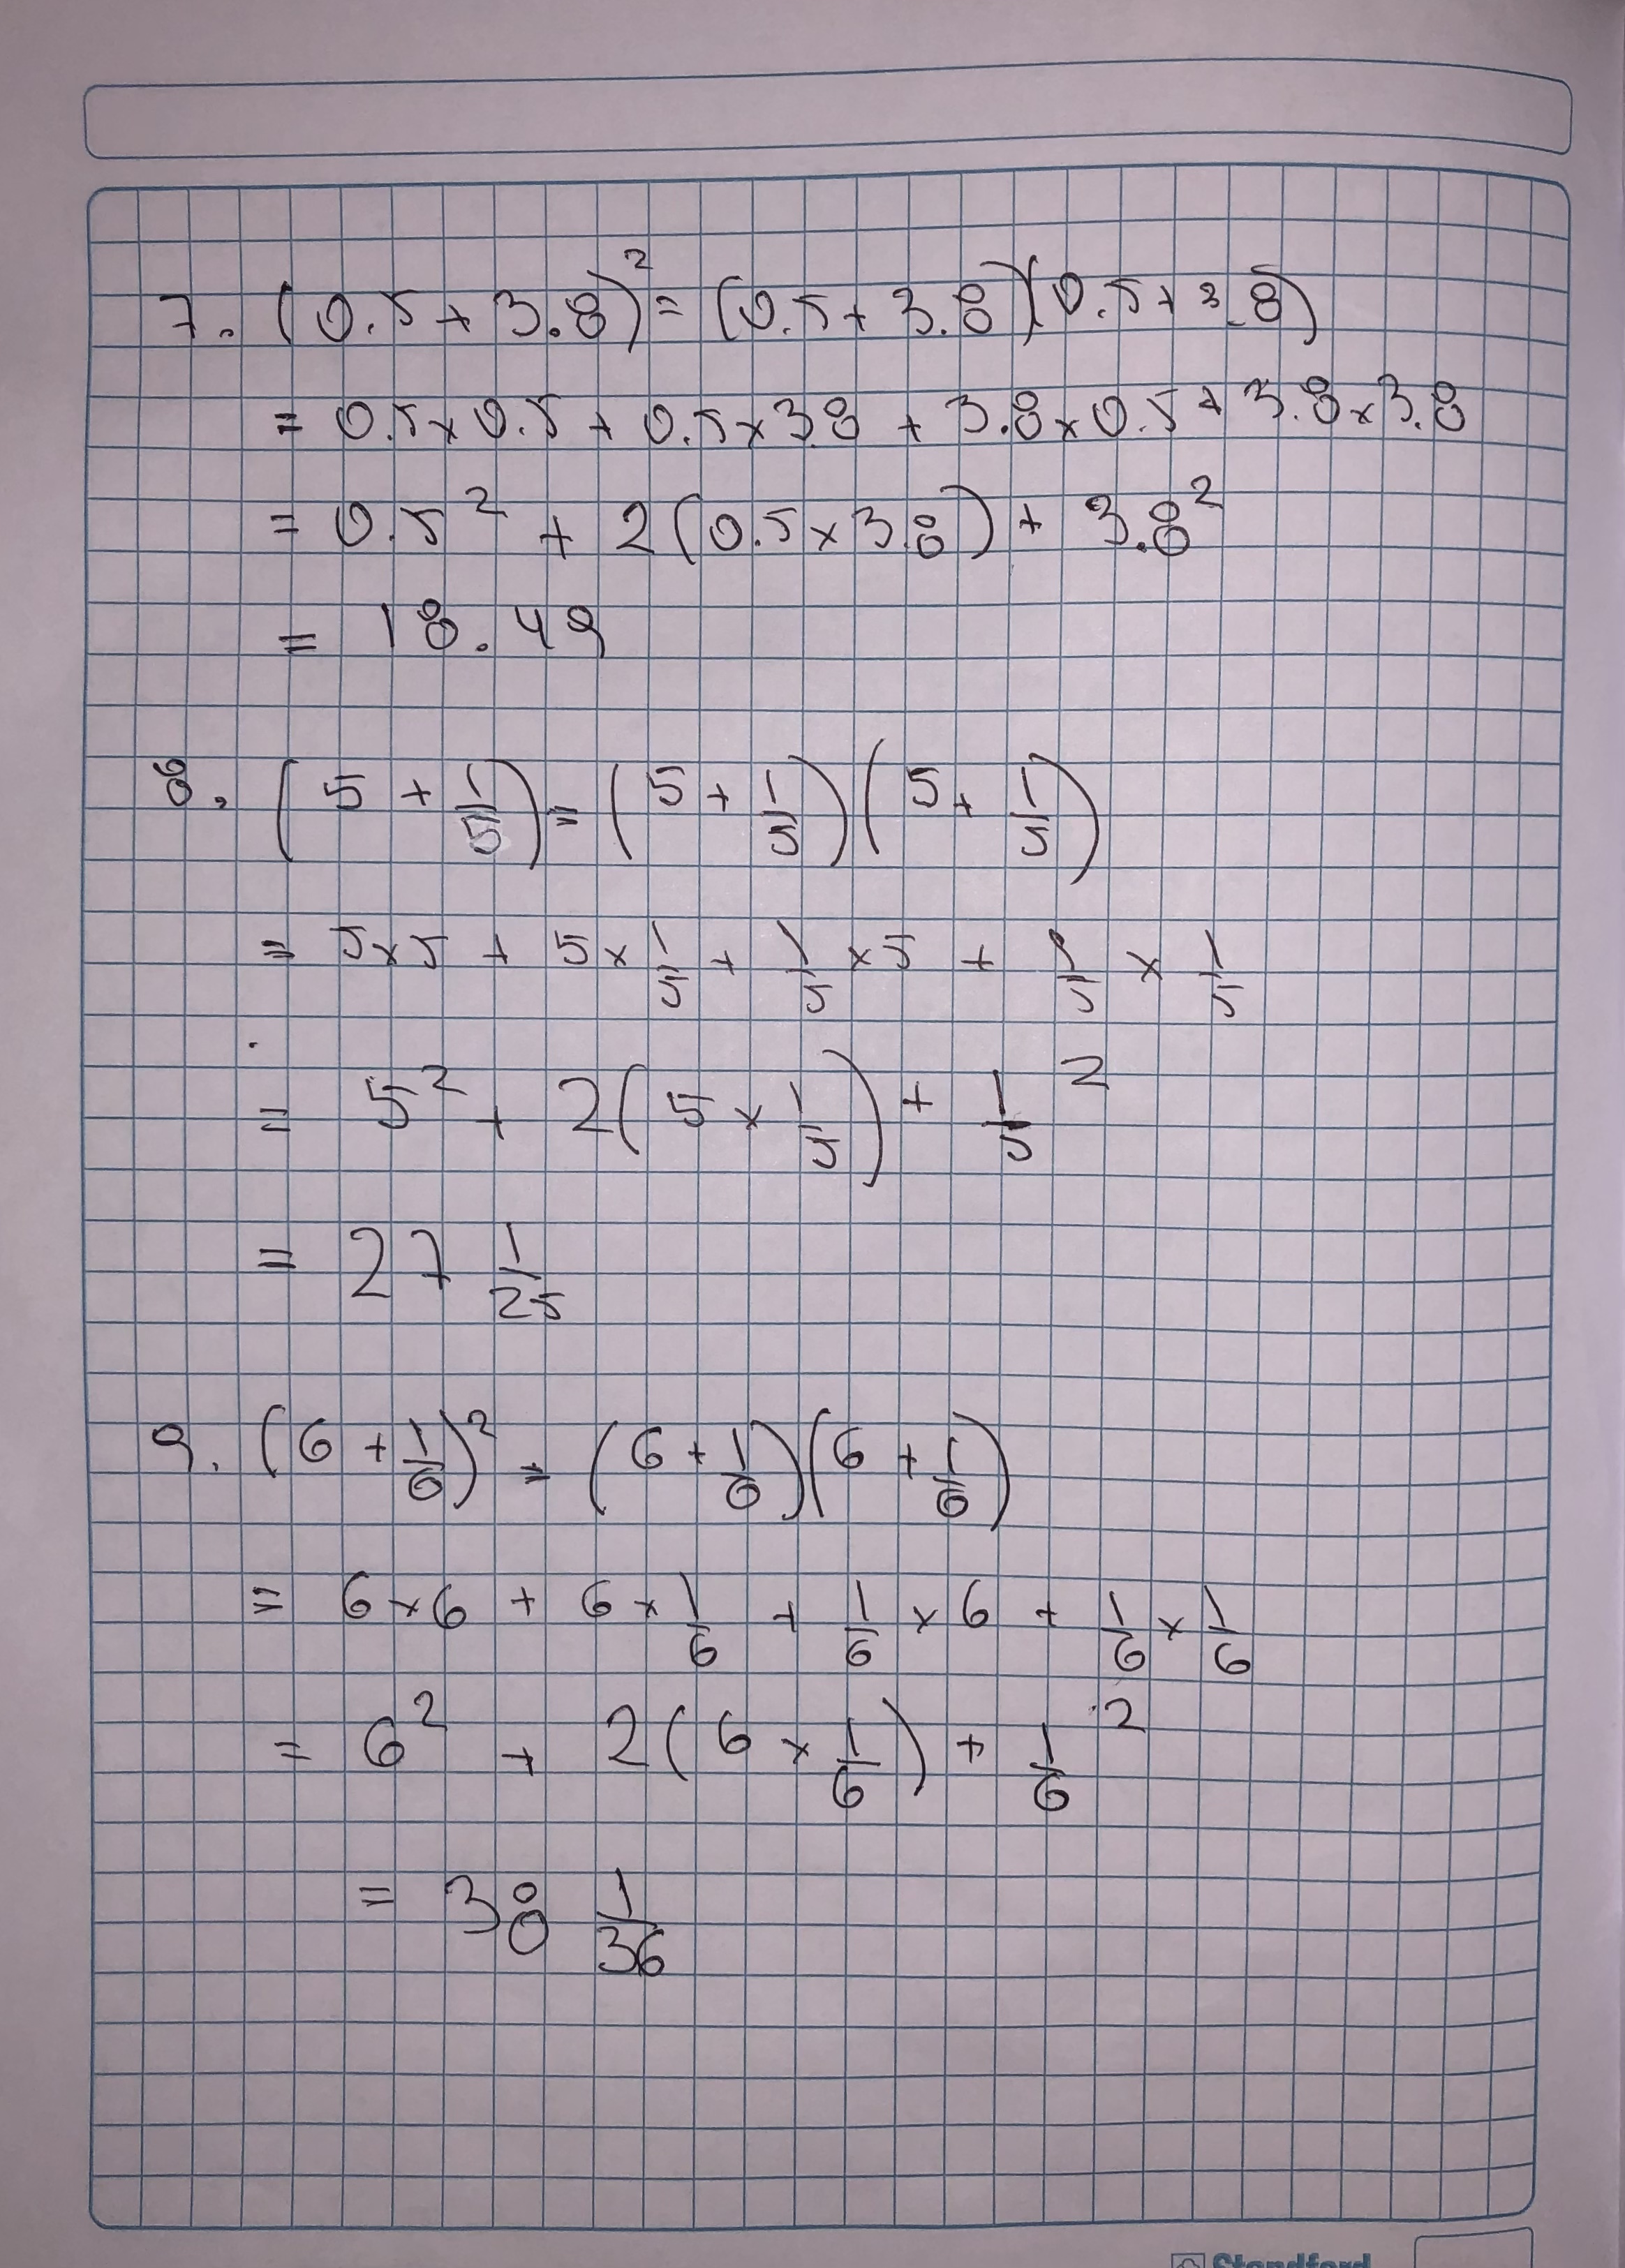 7. (0.5 + 3.8)² = (0.5 + 3.8)(0.5 + 3.8)
= 0.5 × 0.5 + 0.5 × 3.8 + 3.8 × 0.5 + 3.8 × 3.8
= 0.5² + 2(0.5 × 3.8) + 3.8²
= 18.49
8. (5 + 1/5) = (5 + 1/5)(5 + 1/5)
= 5 × 5 + 5 × 1/5 + 1/5 × 5 + 1/5 × 1/5
= 5² + 2(5 × 1/5) + 1/5²
= 27 1/25
9. (6 + 1/6)² = (6 + 1/6)(6 + 1/6)
= 6 × 6 + 6 × 1/6 + 1/6 × 6 + 1/6 × 1/6
= 6² + 2(6 × 1/6) + 1/6²
= 38 1/36
Standford